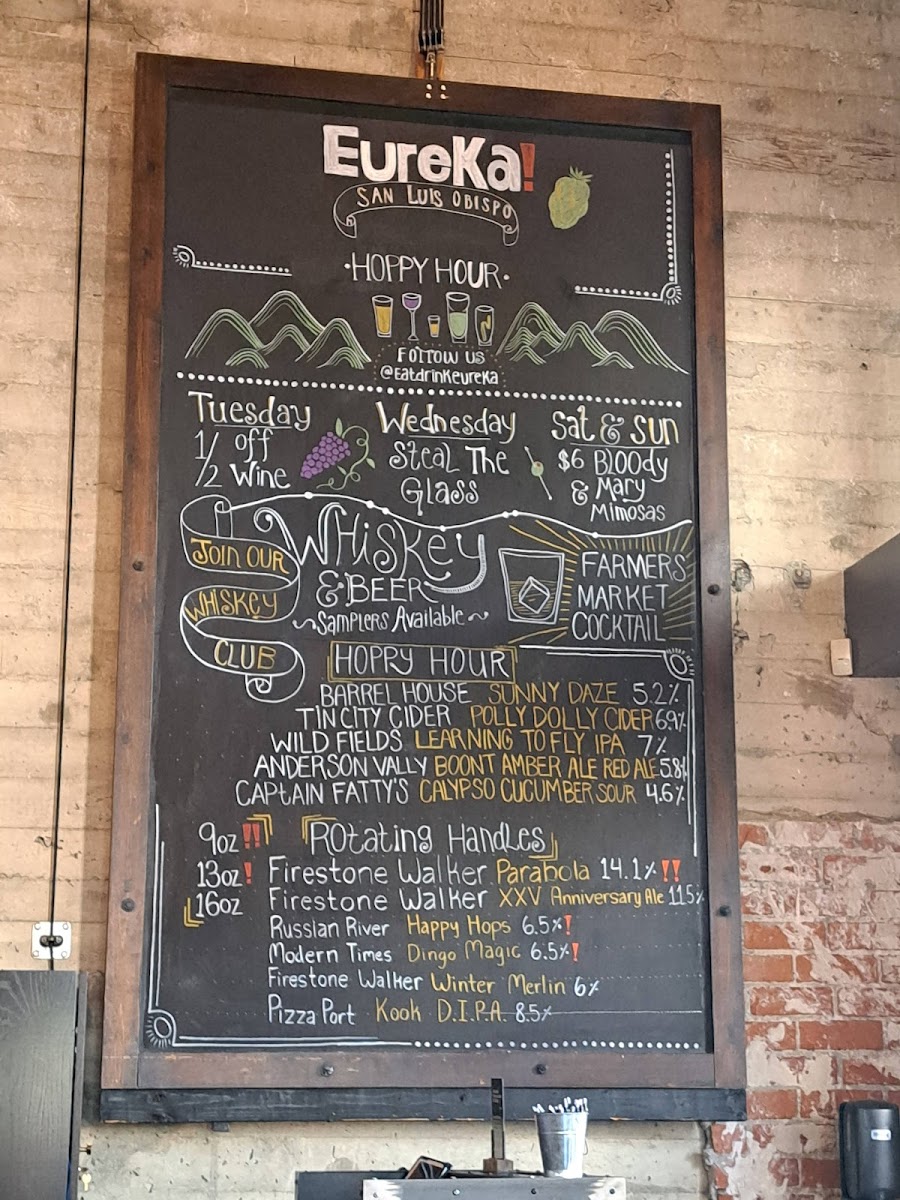 EureKa!
SAN LUIS OBISPO
·HOPPY HOUR·
FOLLOW US
@Eatdrinkeureka
Tuesday
1/2 off
Wine
Wednesday
Steal The
Glass
Sat & Sun
$6 Bloody
& Mary
Mimosas
JOIN OUR
WHISKEY
CLUB
WHiSKEY
& BEER
~Samplers Available~
FARMERS
MARKET
COCKTAIL
HOPPY HOUR
BARREL HOUSE SUNNY DAZE 5.2%
TIN CITY CIDER POLLY DOLLY CIDER 6.9%
WILD FIELDS LEARNING TO FLY IPA 7%
ANDERSON VALLY BOONT AMBER ALE RED ALE 5.8%
CAPTAIN FATTY'S CALYPSO CUCUMBER SOUR 4.6%
9oz!!
13oz!
16oz
Rotating Handles
Firestone Walker Parabola 14.1%!!
Firestone Walker XXV Anniversary Ale 11.5%
Russian River Happy Hops 6.5%!
Modern Times Dingo Magic 6.5%!
Firestone Walker Winter Merlin 6%
Pizza Port Kook D.I.P.A. 8.5%